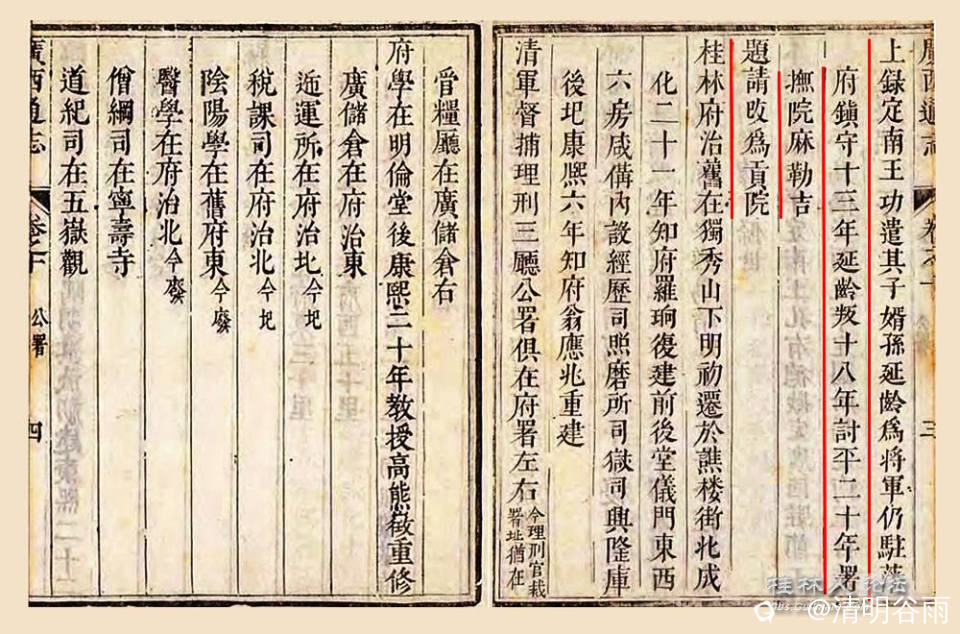 廣西通志
卷之十
公署
三
上録定南王功遣其子婿孫延齡爲將軍仍駐藩
府鎮守十三年延齡叛十八年討平二十年署
撫院麻勒吉
題請改爲貢院
桂林府治舊在獨秀山下明初遷於譙楼街北成
化二十一年知府羅珦復建前後堂儀門東西
六房咸備内設經歷司照磨所司獄司興隆庫
後圯康熙六年知府翁應兆重建
清軍督捕理刑三廳公署俱在府署左右今理刑官裁
署址猶在
管糧廳在廣儲倉右
府學在明倫堂後康熙二十年教授高熊徵重修
廣儲倉在府治東
逓運所在府治北今圯
稅課司在府治北今圯
陰陽學在舊府東今廢
醫學在府治北今廢
僧綱司在寧壽寺
道紀司在五嶽觀
廣西通志
卷之十
公署
四
桂林人论坛
@清明谷雨